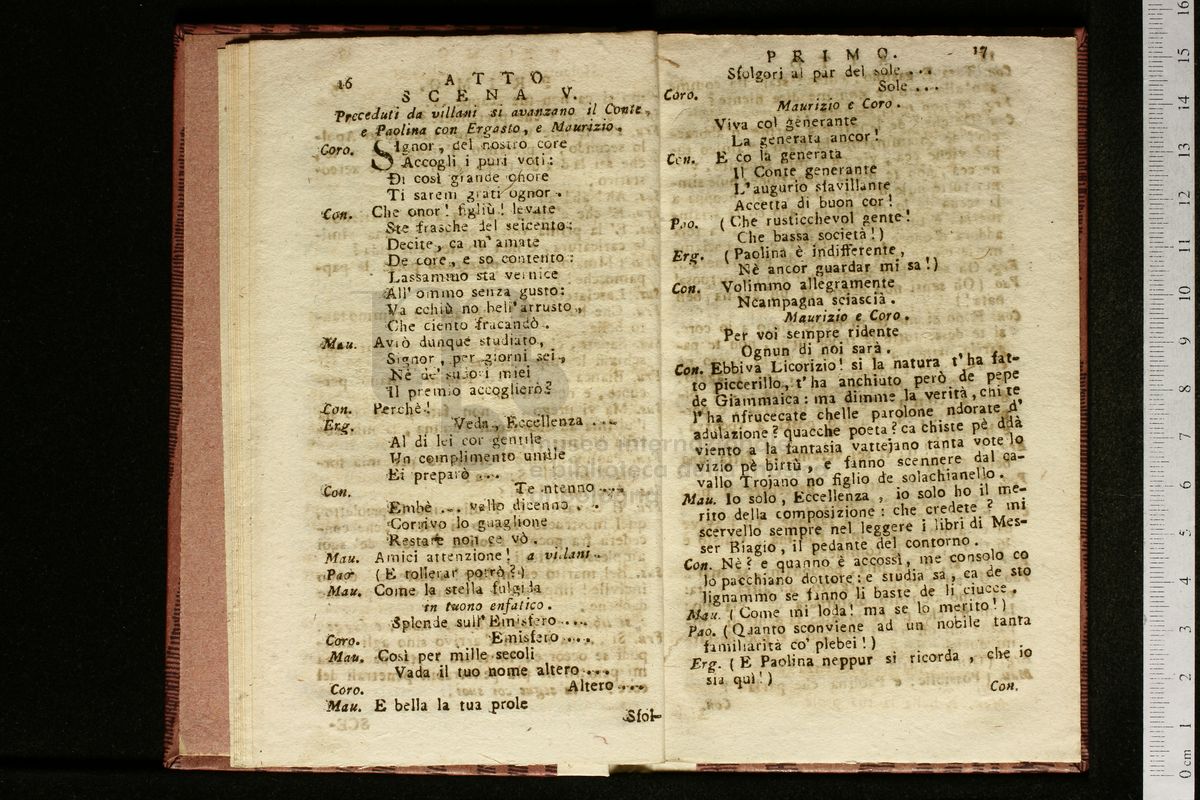 16
ATTO
SCENA V.
Preceduti da villani si avanzano il Conte,
e Paolina con Ergasto, e Maurizio.
Coro. SIgnor, del nostro core
Accogli i puri voti:
Di così grande onore
Ti sarem grati ognor.
Con. Che onor! figliù! levate
Ste frasche del seicento:
Decite, ca m'amate
De core, e so contento:
Lassammo sta vernice
All'ommo senza gusto:
Va cchiù no bell'arrusto,
Che ciento fracandò.
Mau. Avrò dunque studiato,
Signor, per giorni sei,
Nè de' sudori miei
Il premio accoglierò?
Con. Perchè!
Erg. Veda, Eccellenza ...
Al di lei cor gentile
Un complimento umile
Ei preparò ...
Con. Te ntenno ...
Embè ... vello dicenno ...
Corrivo lo guaglione
Restare non ce vò.
Mau. Amici attenzione! a villani.
Pao (E tollerar potrò?)
Mau. Come la stella fulgida
in tuono enfatico.
Splende sull'Emisfero ...
Coro. Emisfero ...
Mau. Così per mille secoli
Vada il tuo nome altero ...
Coro. Altero ...
Mau. E bella la tua prole
Sfol-
PRIMO. 17
Sfolgori al par del sole ...
Coro. Sole ...
Maurizio e Coro.
Viva col generante
La generata ancor!
Con. E co la generata
Il Conte generante
L'augurio sfavillante
Accetta di buon cor!
Pao. (Che rusticchevol gente!
Che bassa società!)
Erg. (Paolina è indifferente,
Nè ancor guardar mi sa!)
Con. Volimmo allegramente
Ncampagna sciascià.
Maurizio e Coro.
Per voi sempre ridente
Ognun di noi sarà.
Con. Ebbiva Licorizio! si la natura t'ha fat-
to piccerillo, t'ha anchiuto però de pepe
de Giammaica: ma dimme la verità, chi te
l'ha nfrucecate chelle parolone ndorate d'
adulazione? quacche poeta? ca chiste pè ddà
viento a la fantasia vattejano tanta vote lo
vizio pè birtù, e fanno scennere dal ca-
vallo Trojano no figlio de solachianello.
Mau. Io solo, Eccellenza, io solo ho il me-
rito della composizione: che credete? mi
scervello sempre nel leggere i libri di Mes-
ser Biagio, il pedante del contorno.
Con. Nè? e quanno è accossì, me consolo co
lo pacchiano dottore: e studia sa, ca de sto
lignammo se fanno li baste de li ciucce.
Mau. (Come mi loda! ma se lo merito!)
Pao. (Quanto sconviene ad un nobile tanta
familiarità co' plebei!)
Erg. (E Paolina neppur si ricorda, che io
sia quì!)
Con.